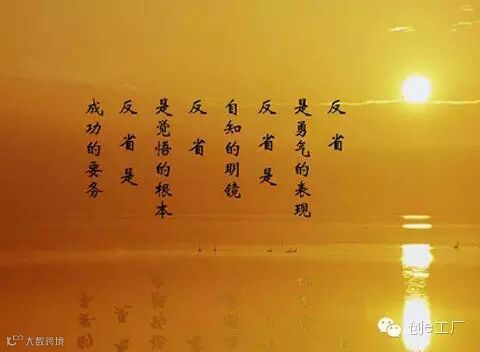 反省
是勇气的表现
反省是
自知的明镜
反省
是觉悟的根本
反省是
成功的要务
大数跨境
创e工厂